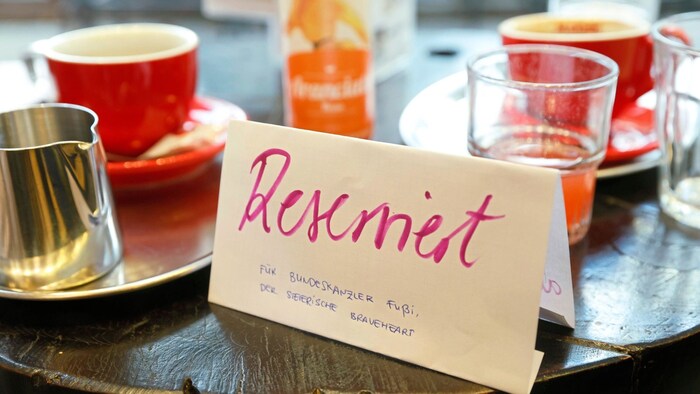 Reserviert
FÜR BUNDESKANZLER Fußi,
DER STEIRISCHE BRAVEHEART